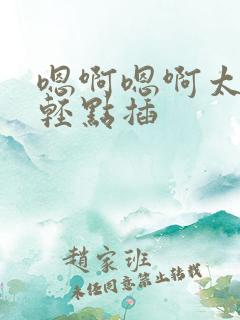 嗯啊嗯啊太
輕點插
趙家班
未任同意禁止转載